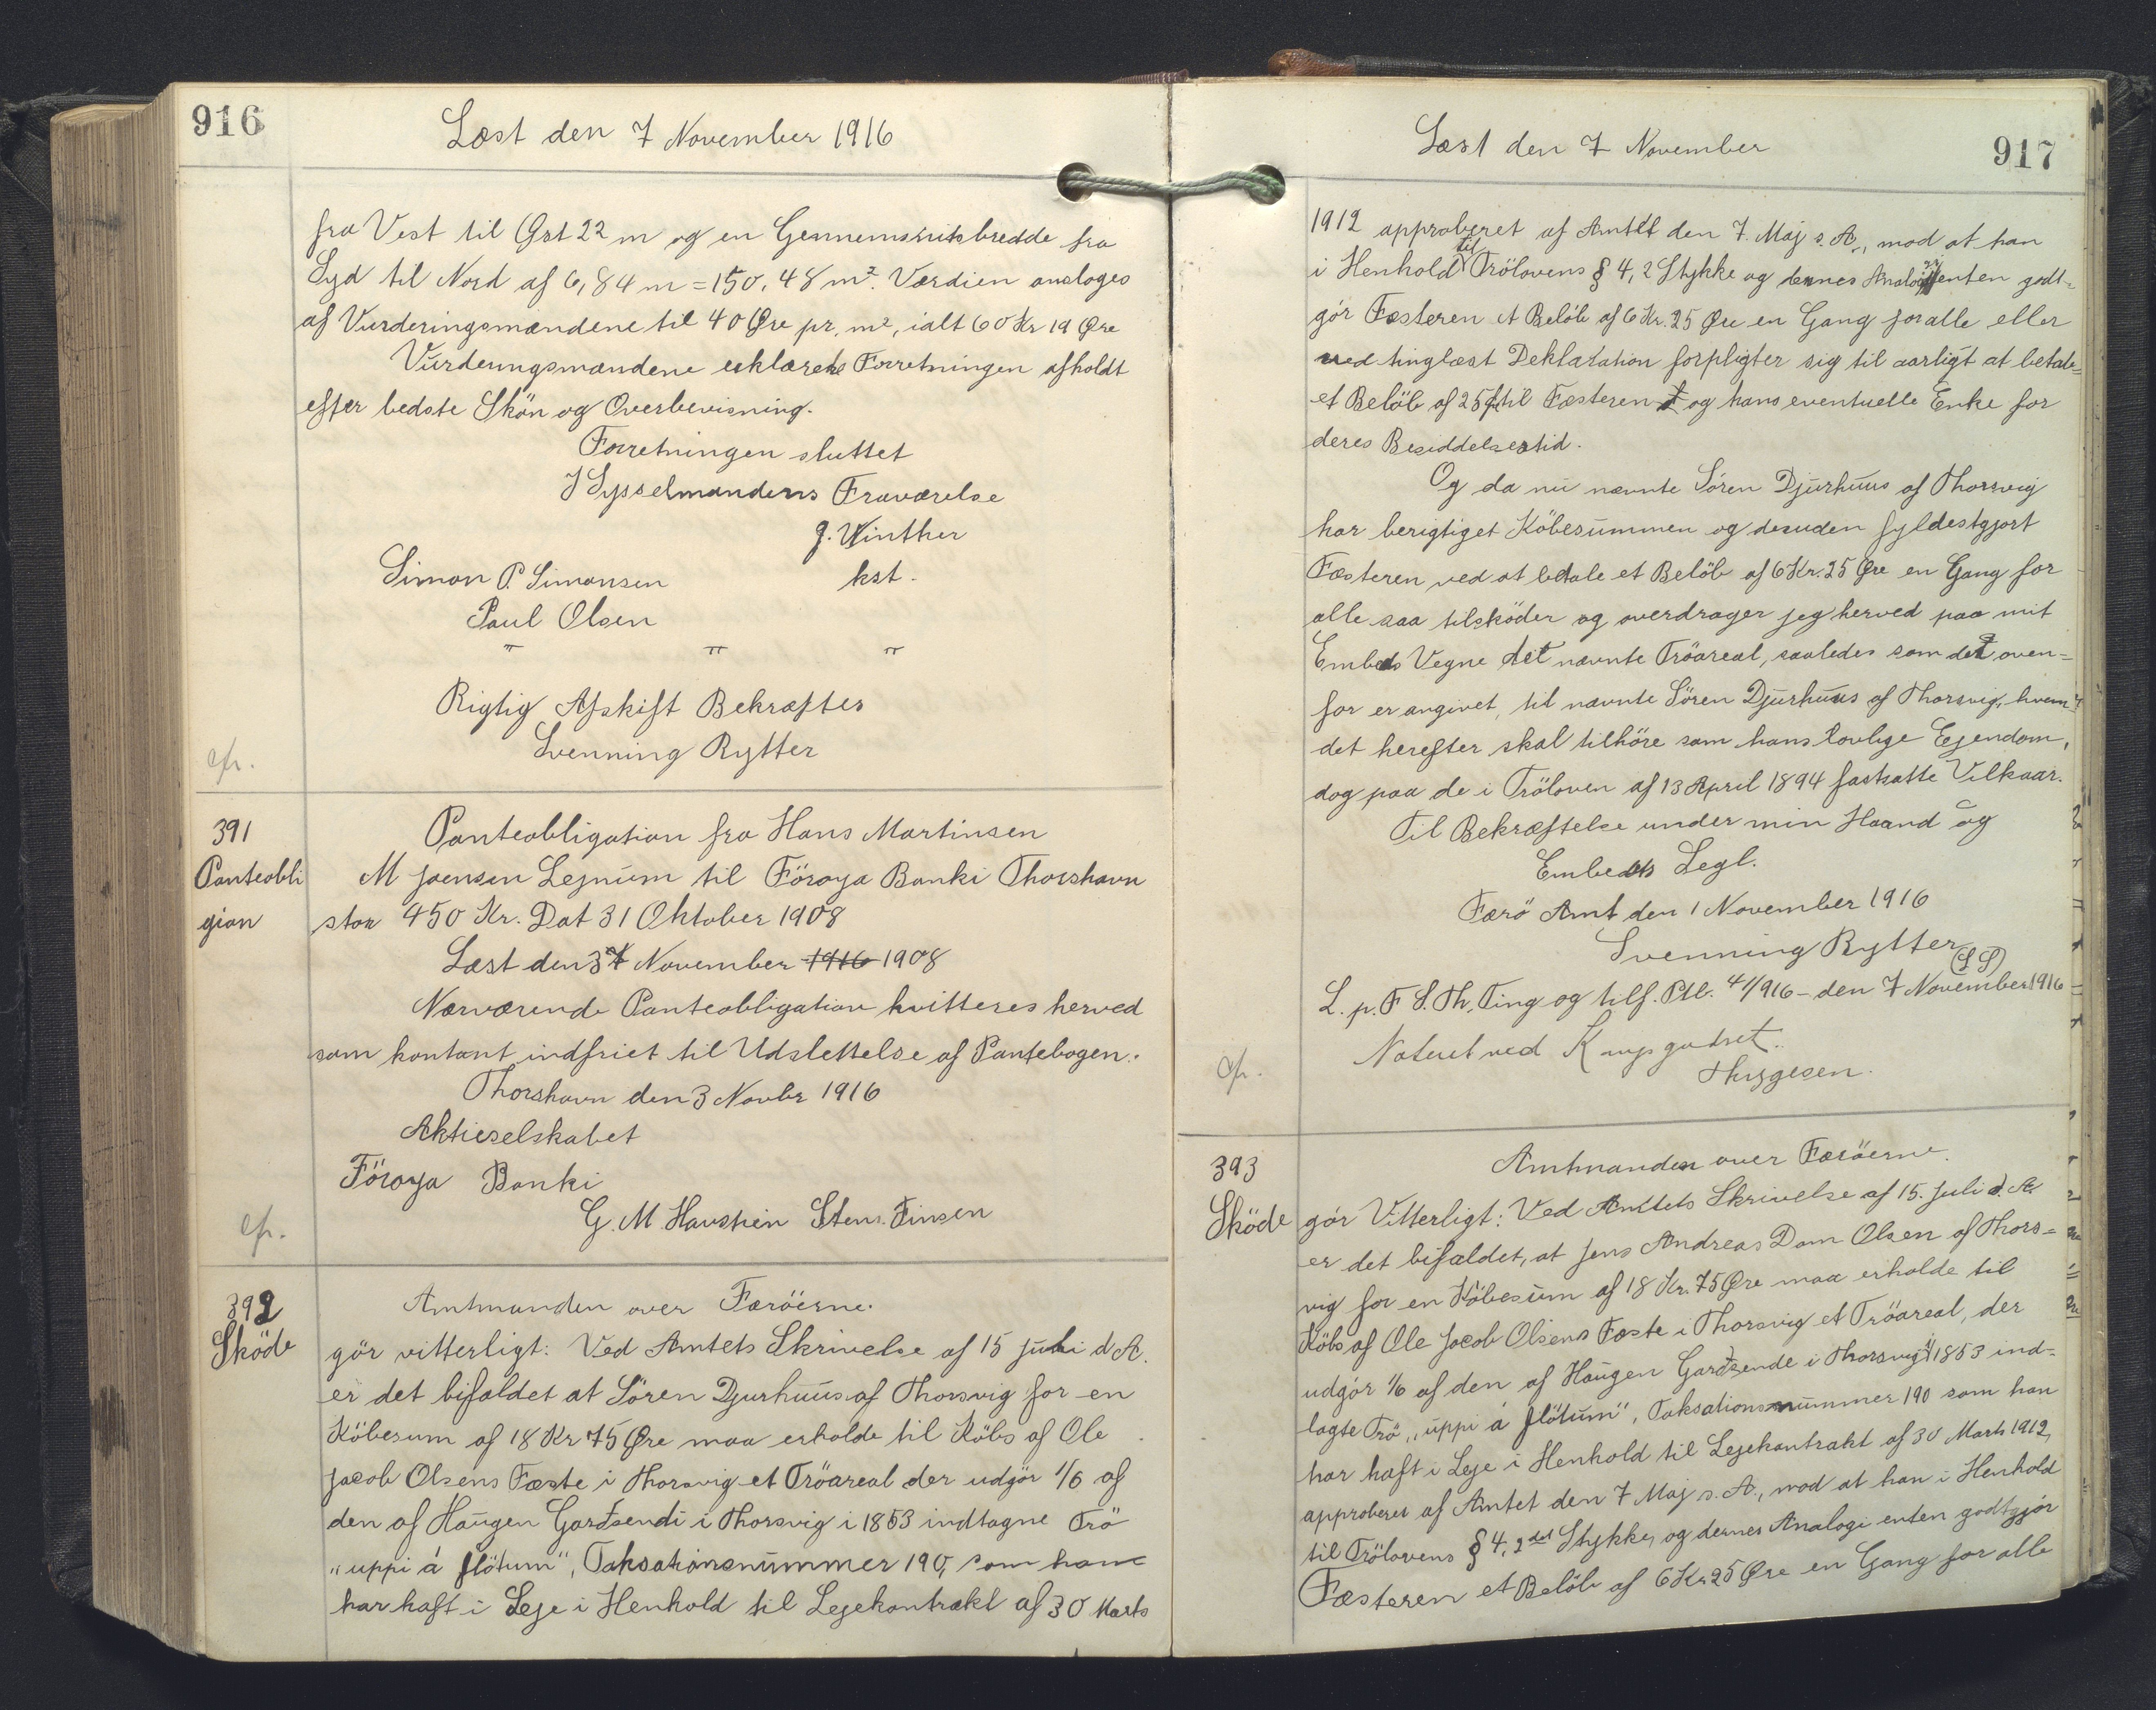 916
Læst den 7 November 1916
fra Vest til Øst 22 m og en Gennemsnitsbredde fra
Syd til Nord af 6,84 m = 150,48 m². Værdien ansloges
af Vurderingsmændene til 40 Øre pr. m², ialt 60 Kr 19 Øre
Vurderingsmændene erklærede Forretningen afholdt
efter bedste Skön og Overbevisning.
Forretningen sluttet
I Sysselmandens Fraværelse
J. Winther
Simon P. Simonsen kst.
Paul Olsen
" " "
Rigtig Afskift Bekræftes
Svenning Rytter
cfr.
391
Panteobli
gion
Panteobligation fra Hans Martinsen
M Joensen Lejnum til Föroya Banki Thorshavn
stor 450 Kr. Dat 31 Oktober 1908
Læst den 3 November 1916 1908
Nærværende Panteobligation kvitteres herved
som kontant indfriet til Udslettelse af Pantebogen.
Thorshavn den 3 Novbr 1916
Aktieselskabet
Föroya Banki
G. M. Havstein Stens. Finsen
cfr.
392
Sköde
Amtmanden over Færöerne.
gör vitterligt: Ved Amtets Skrivelse af 15 Juli d A.
er det bifaldet at Sören Djurhuus af Thorsvig for en
Köbesum af 18 Kr 75 Øre maa erholde til Köbs af Ole
Jacob Olsens Fæste i Thorsvig et Tröareal der udgör 1/6 af
den af Haugen Gardsendi i Thorsvig i 1853 indtagne Trö
"uppi á flötum", Taksationsnummer 190, som han
har haft i Leje i Henhold til Lejekontrakt af 30 Marts
Læst den 7 November
917
1912 approberet af Amtet den 7. Maj s. A., mod at han
i Henhold til Trölovens § 4, 2 Stykke og dennes Analogi enten godt-
gör Fæsteren et Belöb af 6 Kr. 25 Øre en Gang for alle eller
ved tinglæst Deklaration forpligter sig til aarligt at betale
et Belöb af 25 Ø til Fæsteren og hans eventuelle Enke for
deres Besiddelsestid.
Og da nu nævnte Sören Djurhuus af Thorsvig
har berigtiget Köbesummen og desuden fyldestgjort
Fæsteren ved at betale et Belöb af 6 Kr. 25 Øre en Gang for
alle saa tilsköder og overdrager jeg herved paa mit
Embeds Vegne det nævnte Tröareal, saaledes som det oven-
for er angivet, til nævnte Sören Djurhuus af Thorsvig, hvem
det herefter skal tilhöre som hans lovlige Ejendom,
dog paa de i Tröloven af 13 April 1894 fastsatte Vilkaar.
Til Bekræftelse under min Haand og
Embeds Segl.
Færö Amt den 1 November 1916
Svenning Rytter
(L S)
L. p. F S. Th. Ting og tilf. Ptb. 41/916 - den 7 November 1916
Noteret ved Krongodset.
cfr.
393
Sköde
Amtmanden over Færöerne.
gör Vitterligt: Ved Amtets Skrivelse af 15. Juli d. A.
er det bifaldet, at Jens Andreas Dam Olsen af Thors-
vig for en Köbesum af 18 Kr. 75 Øre maa erholde til
Köbs af Ole Jacob Olsens Fæste i Thorsvig et Tröareal, der
udgör 1/6 af den af Haugen Gardsende i Thorsvig i 1853 ind-
tagte Trö „uppi á flötum", Taksationsnummer 190 som han
har haft i Leje i Henhold til Lejekontrakt af 30 Marts 1912,
approberet af Amtet den 7 Maj s. A., mod at han i Henhold
til Trölovens § 4, 2det Stykke, og dennes Analogi enten godtgjör
Fæsteren et Belöb af 6 Kr 25 Øre en Gang for alle